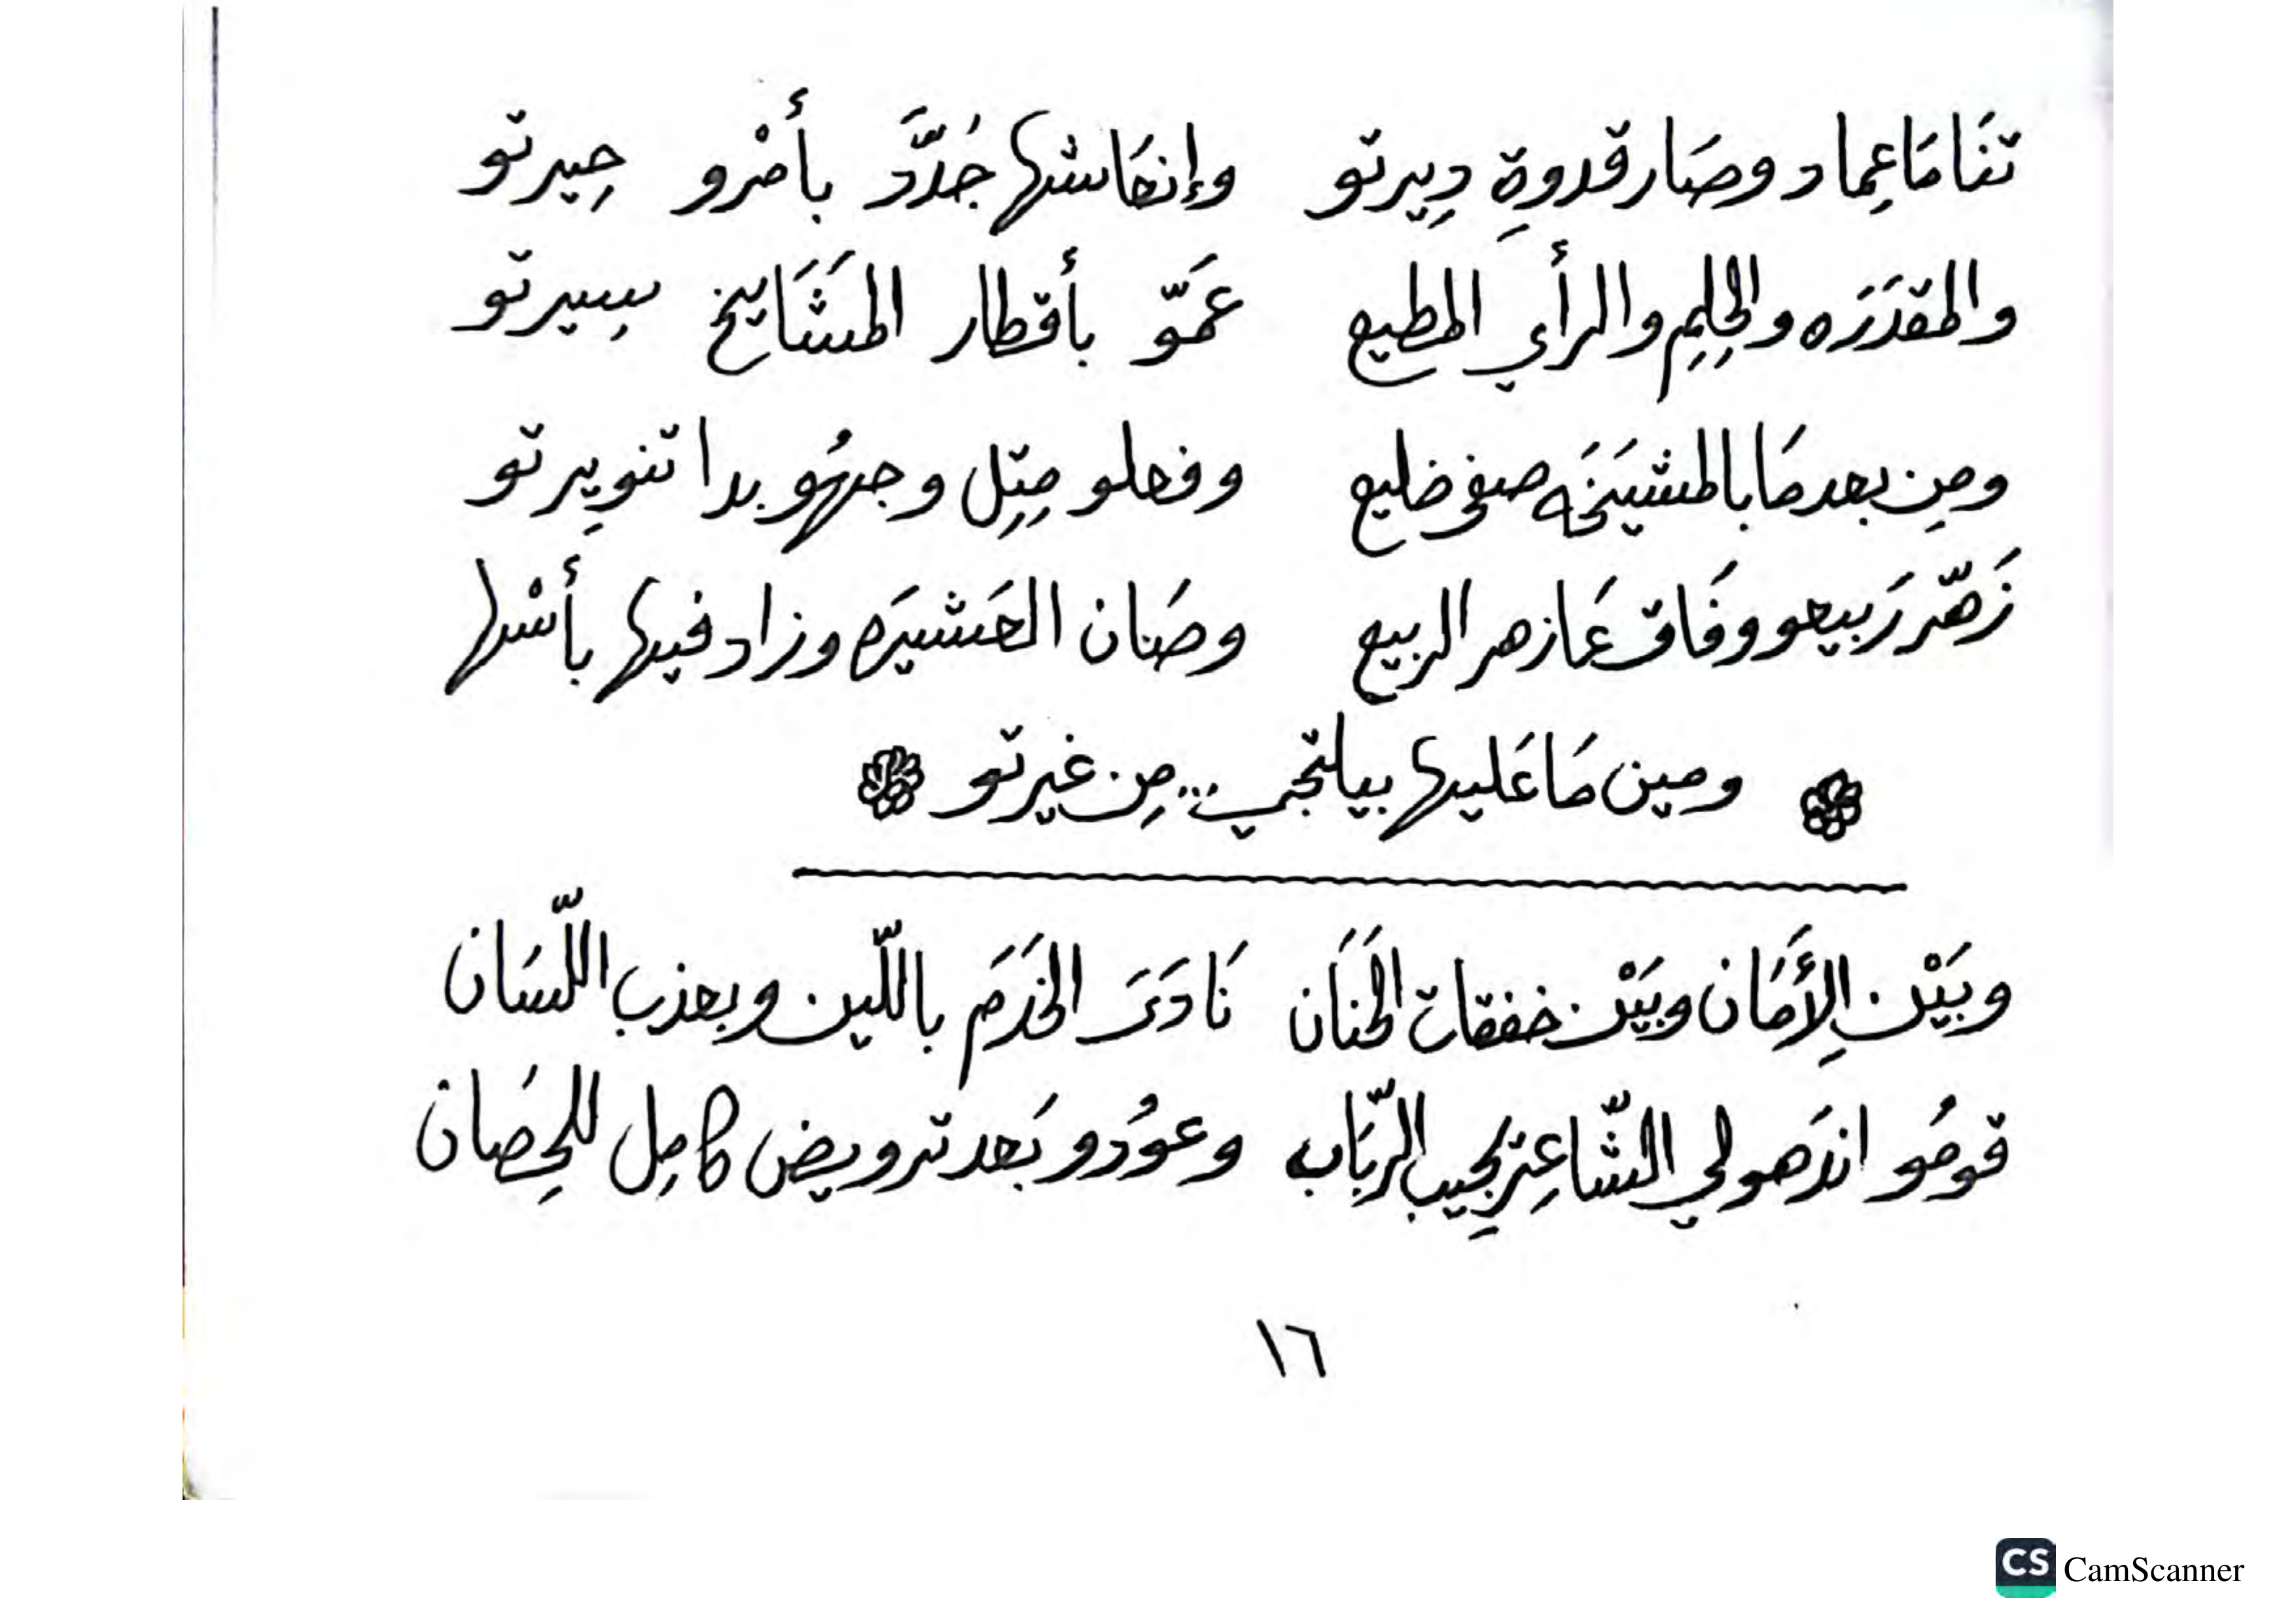 تنَامَا عِماد وصَار قدوةِ دِيرتو وإنعَاشها جُدَّدَ بأمْرو حِيرتو
والمقدَرَه والحِلِمِ والرأي المطيع عمَّو بأقطار المشَايَخ سِيرتو
ومِن بعدمَا بالمشيَخَه صفي ضليع وفعلو مِتِل وجهُو بدا تنوِيرتو
زَهّر رَبيعو وفَاق عَا زهر الربيع وصَان العَشيرَه وزاد فيها بأسْها
ومين مَا عَليها بيلتجي... مِن غيرتو
وبَيْن الِأمَان وبَيْن خفقات الحَنَان نَادَىَ الخَدَم باللّين وبعذب اللّسَان
قومُو اندَهولي الشّاعِر يجِيب الرّبَاب وعوُدو بَعد ترويض كامِل للحِصَان
١٦
CS CamScanner